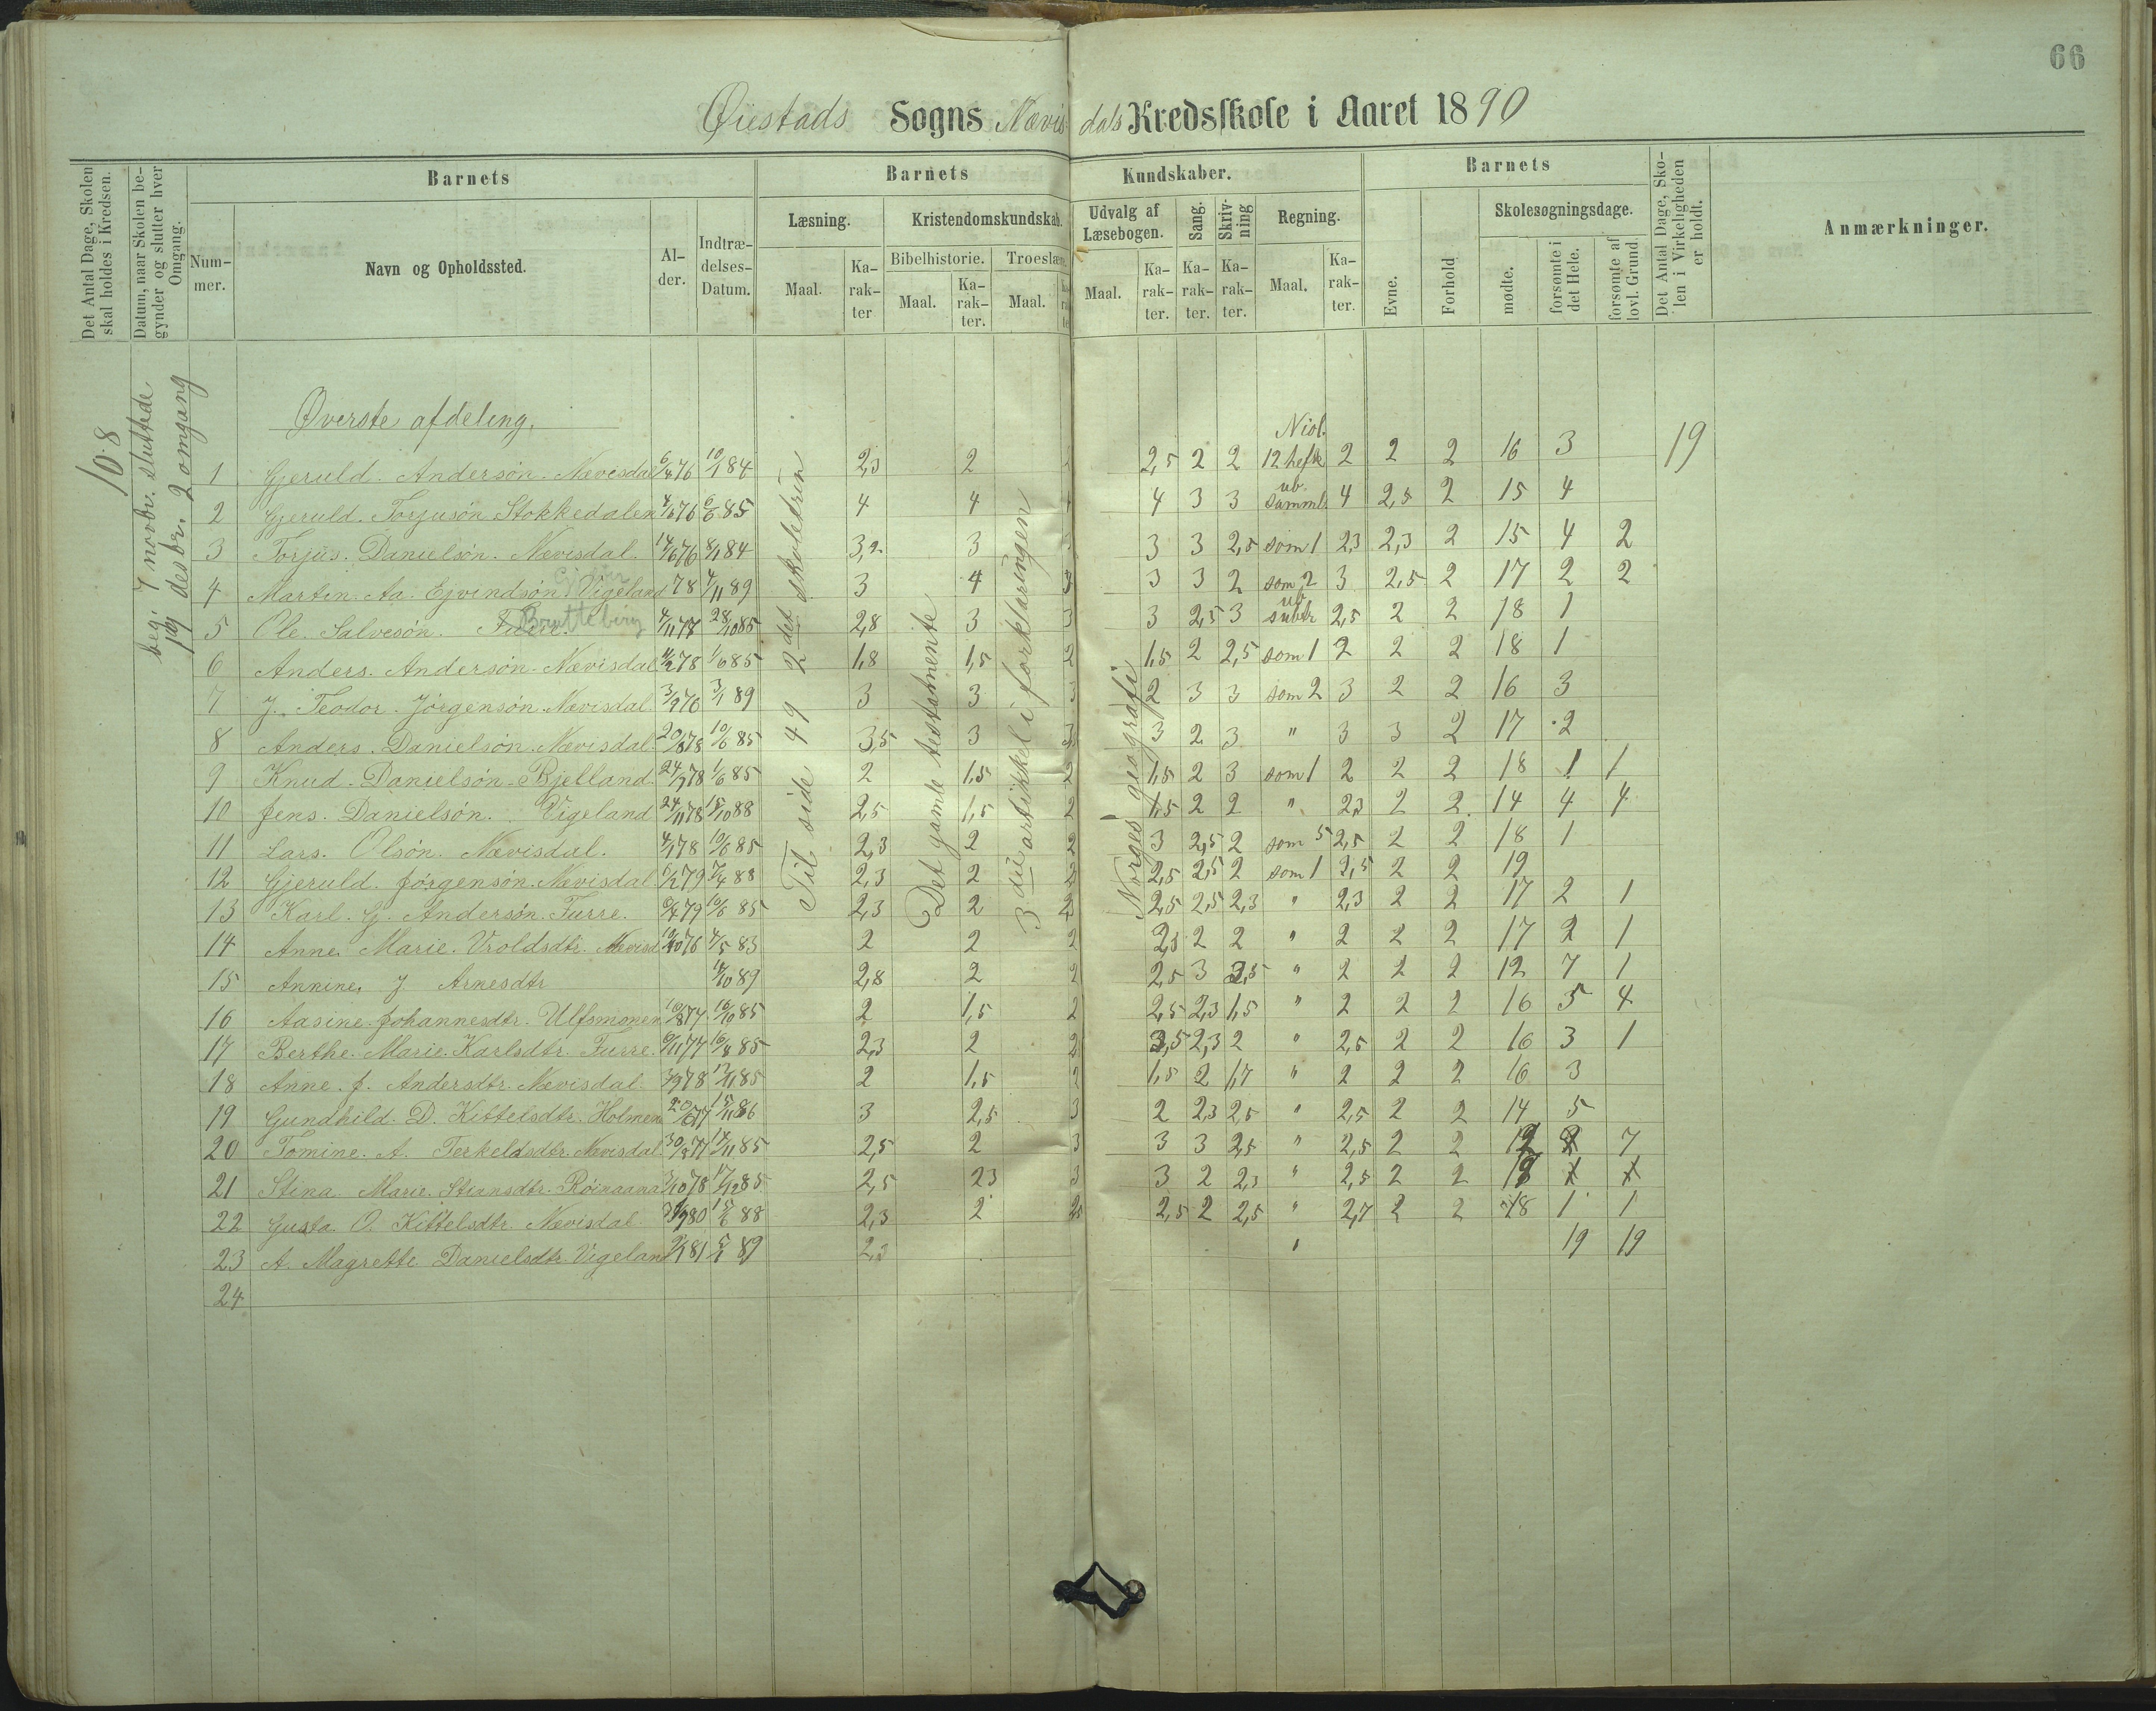 66
Øiestads Sogns Nævisdals Kredsskole i Aaret 1890
Det Antal Dage, Skolen skal holdes i Kredsen.
Datum, naar Skolen begynder og slutter hver Omgang.
Barnets
Nummer.
Navn og Opholdssted.
Alder.
Indtrædelses-Datum.
Barnets Kundskaber.
Læsning.
Maal.
Karakter
Kristendomskundskab.
Bibelhistorie.
Maal.
Karakter.
Troeslære
Maal.
Udvalg af Læsebogen.
Maal.
Karakter.
Sang.
Karakter.
Skrivning
Karakter.
Regning.
Maal.
Karakter.
Barnets
Evne.
Forhold
Skolesøgningsdage.
mødte.
forsømte i det Hele.
forsømte af lovl. Grund.
Det Antal Dage, Skolen i Virkeligheden er holdt.
Anmærkninger.
108
beg. 7 novbr. sluttede
desbr. 2 omgang
Øverste afdeling.
Til side 49 2det skoletrin
Det gamle testamente
3die artikkel i forklaringen
Norges geografi
19
1 Gjeruld. Andersøn. Nævisdal 6/4 76 10/1 84 2,3 2 2,5 2 2 Niol. 12 hefte 2 2 2 16 3
2 Gjeruld. Torjusøn Stokkedalen 76 6/6 85 4 4 4 3 3 ub. samml. 4 2,5 2 15 4
3 Torjus. Danielsøn. Nævisdal. 14/6 76 8/1 84 3,2 3 3 3 2,5 som 1 2,3 2,3 2 15 4 2
4 Martin. Aa. Ejvindsøn Vigeland 78 4/11 89 3 4 3 3 3 2 som 2 3 2,5 2 17 2 2
5 Ole. Salvesøn. Furre. Brutteberg 4/11 77 28/10 85 2,8 3 3 3 2,5 3 ub. subtr 2,5 2 2 18 1
6 Anders. Andersøn. Nævisdal 4/2 78 1/6 85 1,8 1,5 2 1,5 2 2,5 som 1 2 2 2 18 1
7 J. Teodor. Jørgensøn. Nævisdal. 3/9 76 3/1 89 3 3 3 2 3 3 som 2 3 2 2 16 3
8 Anders. Danielsøn. Nævisdal. 20/6 78 10/6 85 3,5 3 3 3 2 3 " 3 3 2 17 2
9 Knud. Danielsøn. Bjelland. 24/7 78 1/6 85 2 1,5 2 1,5 2 3 som 1 2 2 2 18 1 1
10 Jens. Danielsøn. Vigeland 24/11 78 15/10 88 2,5 1,5 2 1,5 2 2 " 2,3 2 2 14 4 4
11 Lars. Olsøn. Nævisdal. 4/1 78 10/6 85 2,3 2 2 3 2,5 2 som 5 2,5 2 2 18 1
12 Gjeruld. Jørgensøn. Nævisdal 79 7/4 88 2,3 2 2 2,5 2,5 2 som 1 2,5 2 2 19
13 Karl. G. Andersøn. Furre. 79 10/6 85 2,3 2 2 2,5 2,5 2,3 " 2,3 2 2 17 2 1
14 Anne. Marie. Vroldsdtr. Nævisd. 76 4/5 83 2 2 2 2,3 2 2 " 2 2 2 17 2 1
15 Annine. J Arnesdtr 14/10 89 2,8 2 2 2,5 3 2,5 " 2 2 2 12 7 1
16 Aasine. Johannesdtr. Ulfsmonen 10/8 77 16/10 85 2 1,5 2 2,5 2,3 1,5 " 2 2 2 16 5 4
17 Berthe. Marie. Karlsdtr. Furre. 6/11 77 16/8 85 2,3 2 2 3,5 2,3 2 " 2,5 2 2 16 3 1
18 Anne. J. Andersdtr. Nævisdal. 3/9 78 17/11 85 2 1,5 2 1,5 2 1,7 " 2 2 2 16 3
19 Gundhild. D. Kittelsdtr. Holmen 77 15/11 86 3 2,5 3 2 2,3 2,5 " 2,5 2 2 14 5
20 Tomine. A. Terkeldsdtr. Nævisdal 30/3 77 14/11 85 2,5 2 3 3 3 2,5 " 2,5 2 2 12 7
21 Stina. Marie. Stiansdtr. Røinaana 3/10 78 17/12 85 2,5 2,3 3 3 2 2,3 " 2,5 2 2 18
22 Gusta. O. Kittelsdtr. Nævisdal. 80 15/6 88 2,3 2 2,5 2 2,5 " 2,7 2 2 18 1 1
23 A. Magrethe. Danielsdtr. Vigeland 81 5/1 89 2,3 " 19 19
24